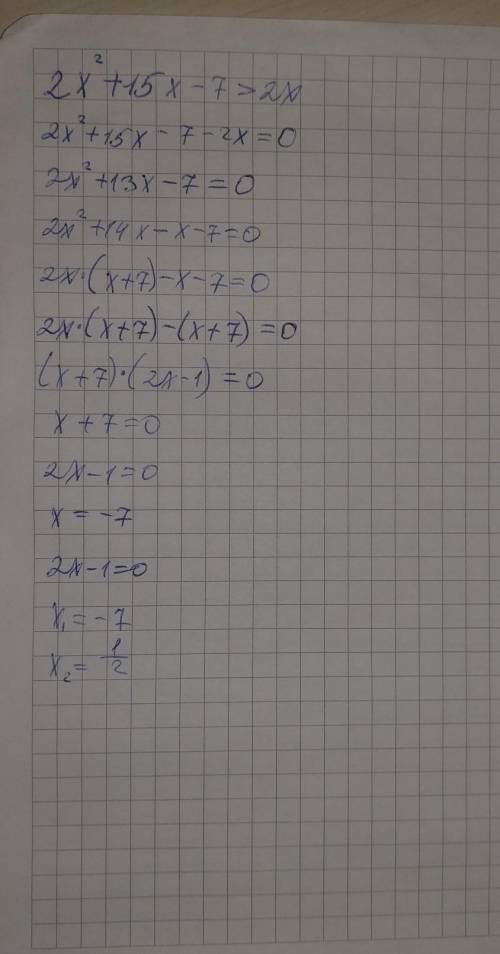 2x² + 15x - 7 > 2x
2x² + 15x - 7 - 2x = 0
2x² + 13x - 7 = 0
2x² + 14x - x - 7 = 0
2x · (x + 7) - x - 7 = 0
2x · (x + 7) - (x + 7) = 0
(x + 7) · (2x - 1) = 0
x + 7 = 0
2x - 1 = 0
x = -7
2x - 1 = 0
x₁ = -7
x₂ = 1/2